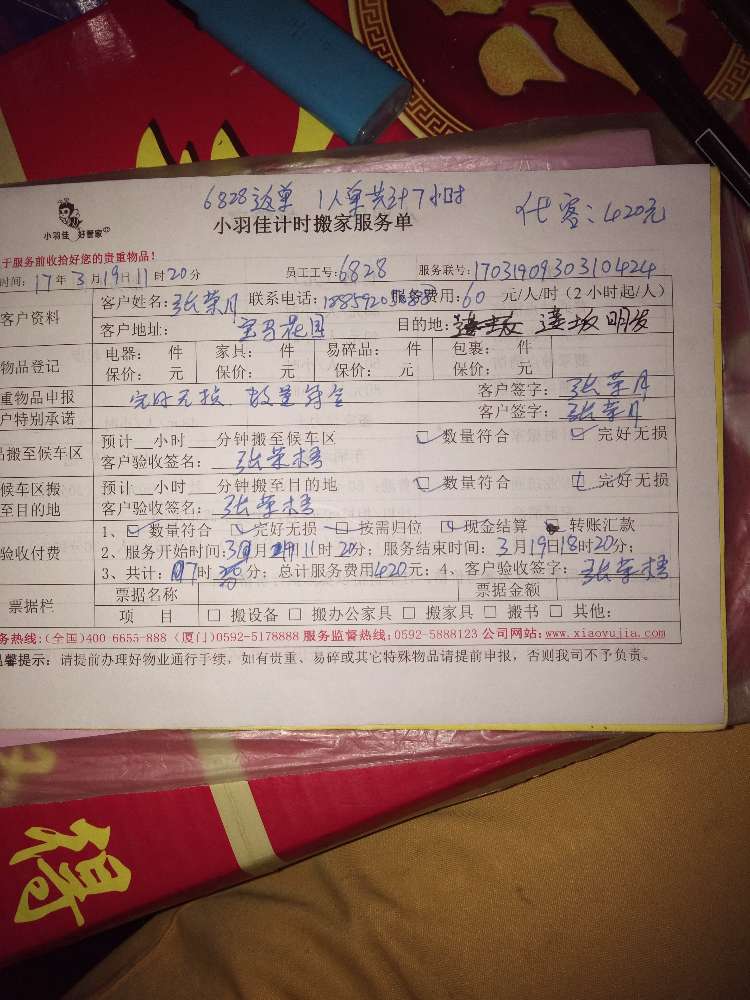 6828返单 1人单共计7小时
代客:420元
小羽佳 好管家
小羽佳计时搬家服务单
于服务前收拾好您的贵重物品!
时间:17年3月19日11时20分 员工工号:6828 服务联号:1703190930310424
客户资料 客户姓名:张荣月 联系电话: 服务费用:60 元/人/时(2小时起/人)
客户地址: 宝马花园 目的地: 莲坂明发
物品登记 电器: 件 家具: 件 易碎品: 件 包裹: 件
保价: 元 保价: 元 保价: 元 保价: 元
重物品申报 完好无损 数量符合 客户签字:张荣月
户特别承诺 客户签字:张荣月
品搬至候车区 预计__小时__分钟搬至候车区 数量符合 完好无损
客户验收签名:张荣梧
候车区搬至目的地 预计__小时__分钟搬至目的地 数量符合 完好无损
客户验收签名:张荣梧
验收付费 1、数量符合 完好无损 按需归位 现金结算 转账汇款
2、服务开始时间:3月19日11时20分;服务结束时间:3月19日18时20分;
3、共计:7时 分;总计服务费用420元;4、客户验收签字:张荣梧
票据栏 票据名称 票据金额
项 目 □ 搬设备 □ 搬办公家具 □ 搬家具 □ 搬书 □ 其他:
务热线:(全国)400 6655-888 (厦门)0592-5178888 服务监督热线:0592-5888123 公司网站:www.xiaoyujia.com
温馨提示:请提前办理好物业通行手续,如有贵重、易碎或其它特殊物品请提前申报,否则我司不予负责。
得